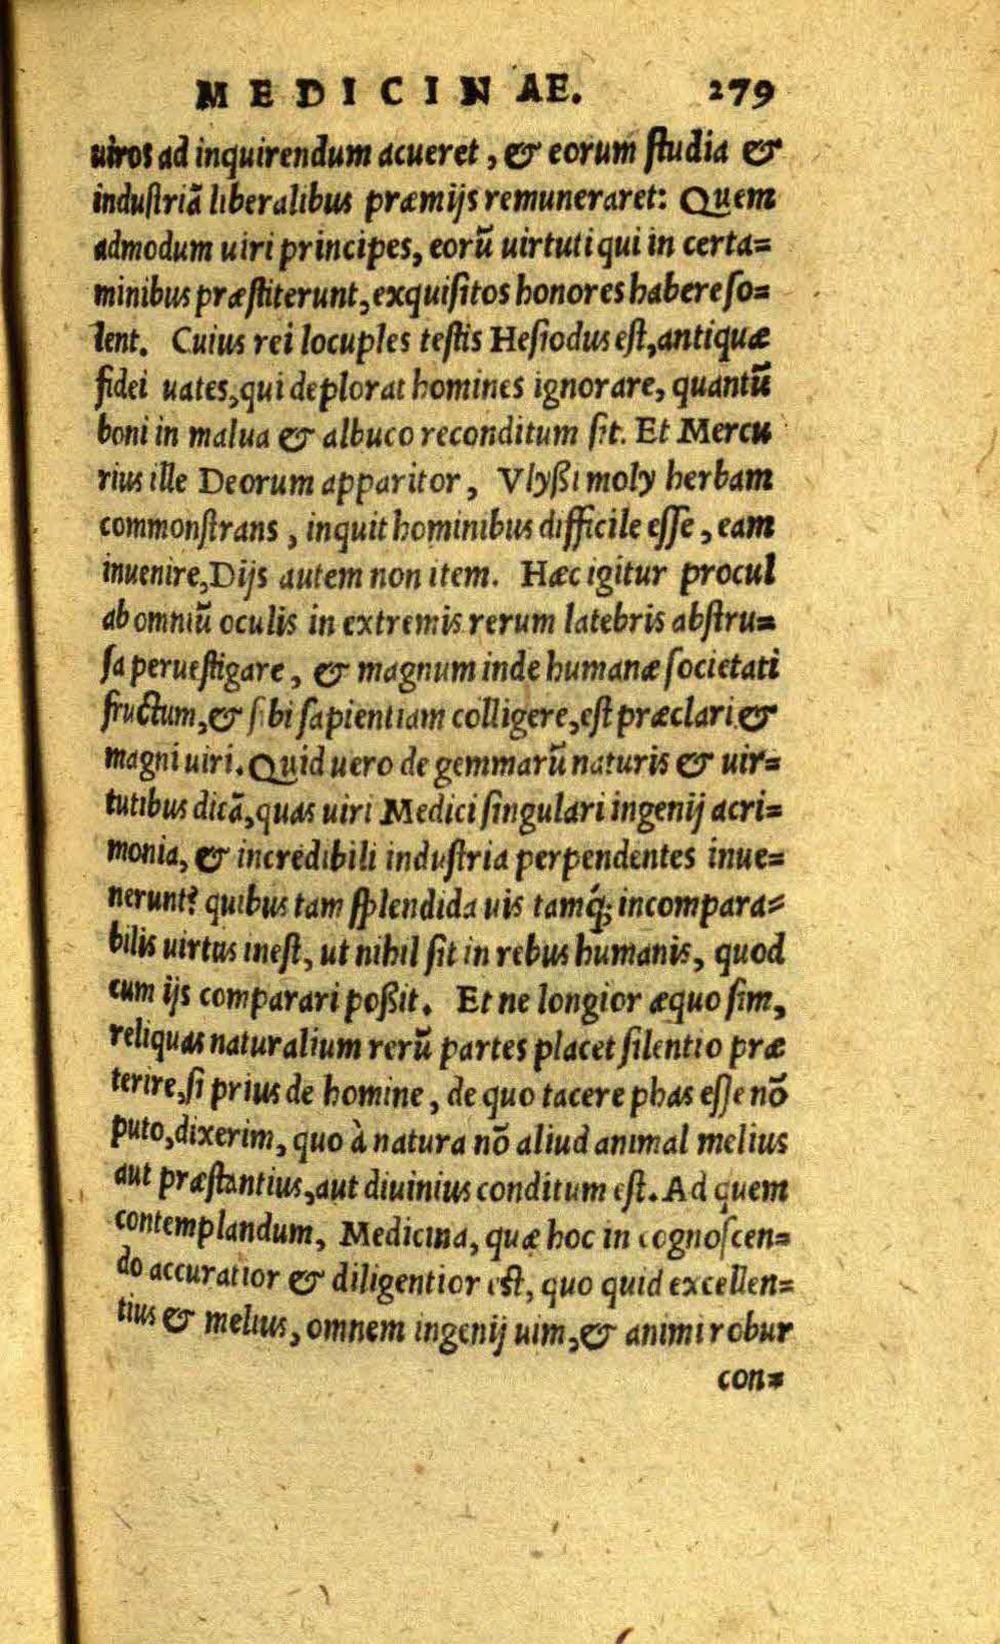 MEDICINAE. 279
uiros ad inquirendum acueret, & eorum studia &
industriā liberalibus præmijs remuneraret: Quem
admodum uiri principes, eorū uirtuti qui in certa=
minibus præstiterunt, exquisitos honores habere so=
lent. Cuius rei locuples testis Hesiodus est, antiquæ
fidei uates, qui deplorat homines ignorare, quantū
boni in malua & albuco reconditum sit. Et Mercu
rius ille Deorum apparitor, Vlyßi moly herbam
commonstrans, inquit hominibus difficile esse, eam
inuenire, Dijs autem non item. Hæc igitur procul
ab omniū oculis in extremis rerum latebris abstru=
sa peruestigare, & magnum inde humanæ societati
fructum, & sibi sapientiam colligere, est præclari &
magni uiri. Quid uero de gemmarū naturis & uir=
tutibus dicā, quas uiri Medici singulari ingenij acri=
monia, & incredibili industria perpendentes inue=
nerunt? quibus tam splendida uis tamq́; incompara=
bilis uirtus inest, ut nihil sit in rebus humanis, quod
cum ijs comparari poßit. Et ne longior æquo sim,
reliquas naturalium rerū partes placet silentio præ
terire, si prius de homine, de quo tacere phas esse nō
puto, dixerim, quo à natura nō aliud animal melius
aut præstantius, aut diuinius conditum est. Ad quem
contemplandum, Medicina, quæ hoc in cognoscen=
do accuratior & diligentior est, quo quid excellen=
tius & melius, omnem ingenij uim, & animi robur
con=